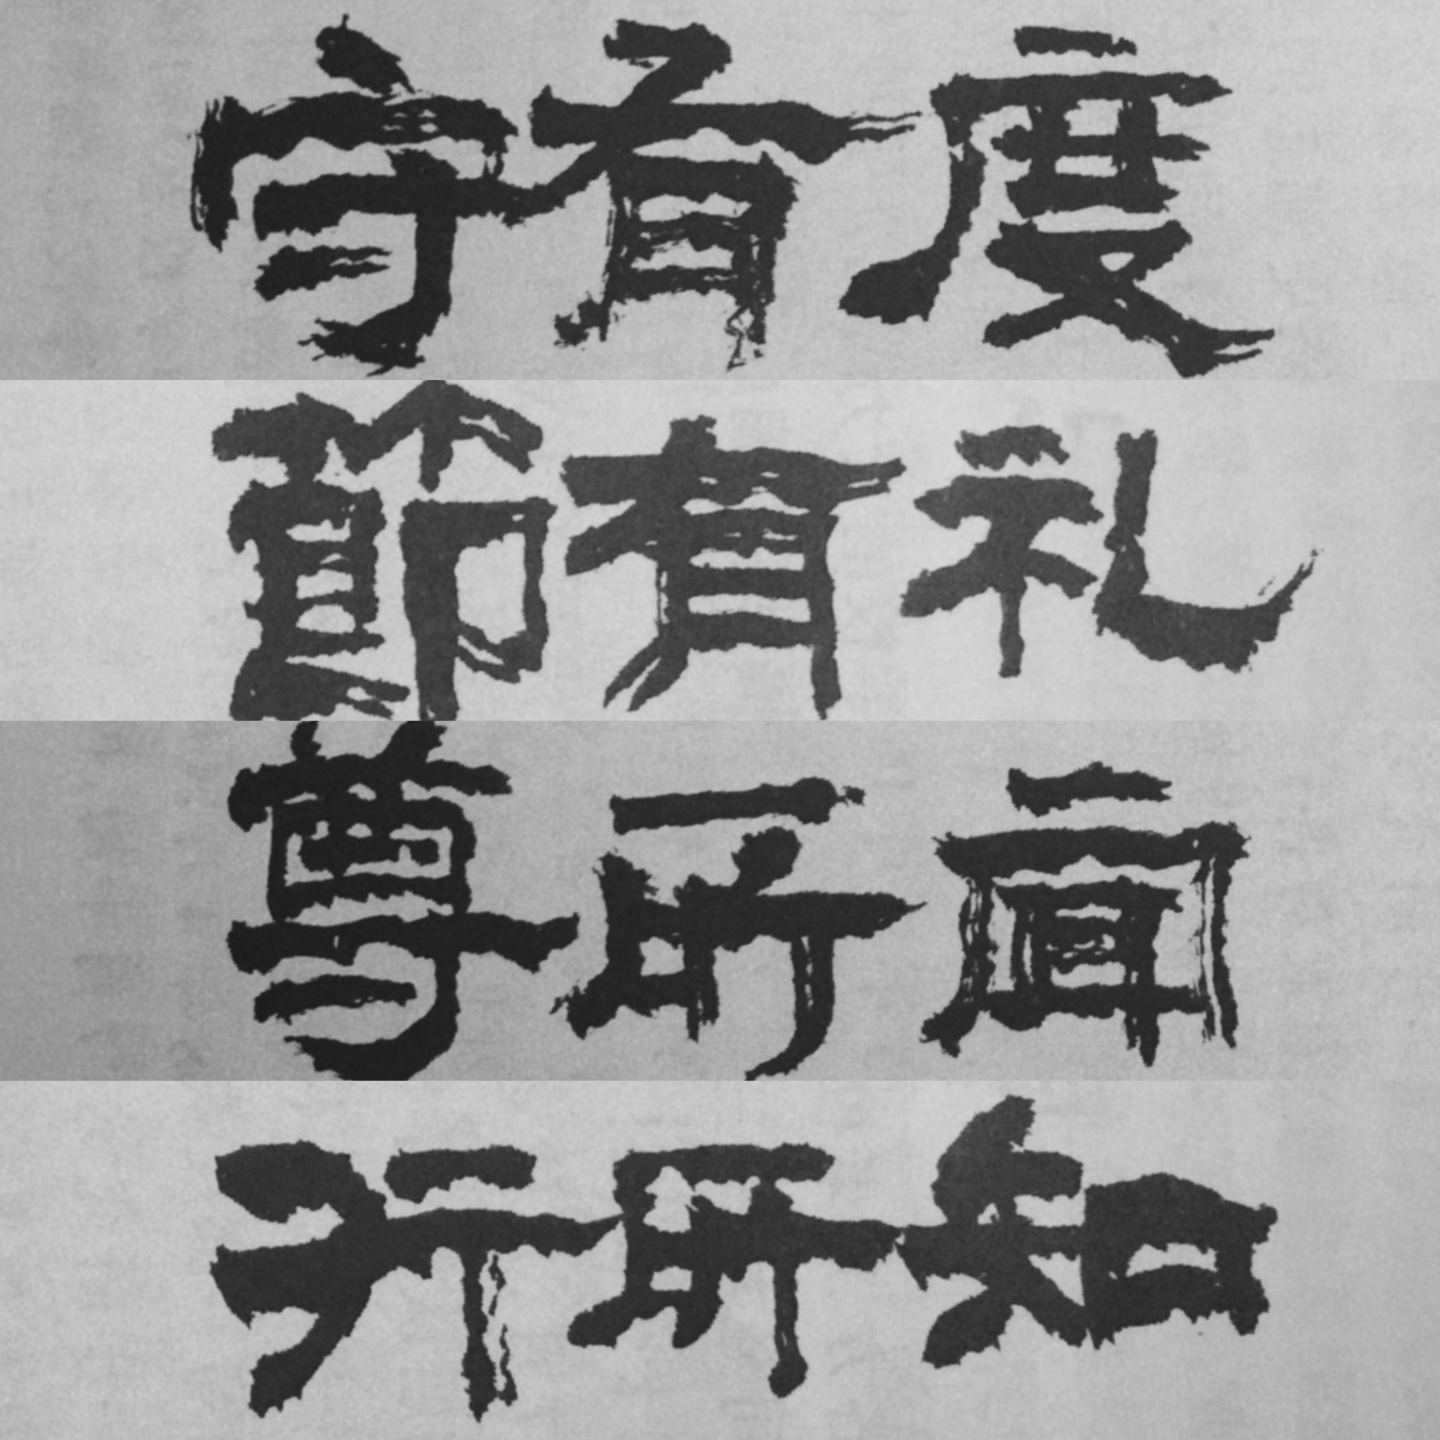 守有度
節有礼
尊所闻
行所知